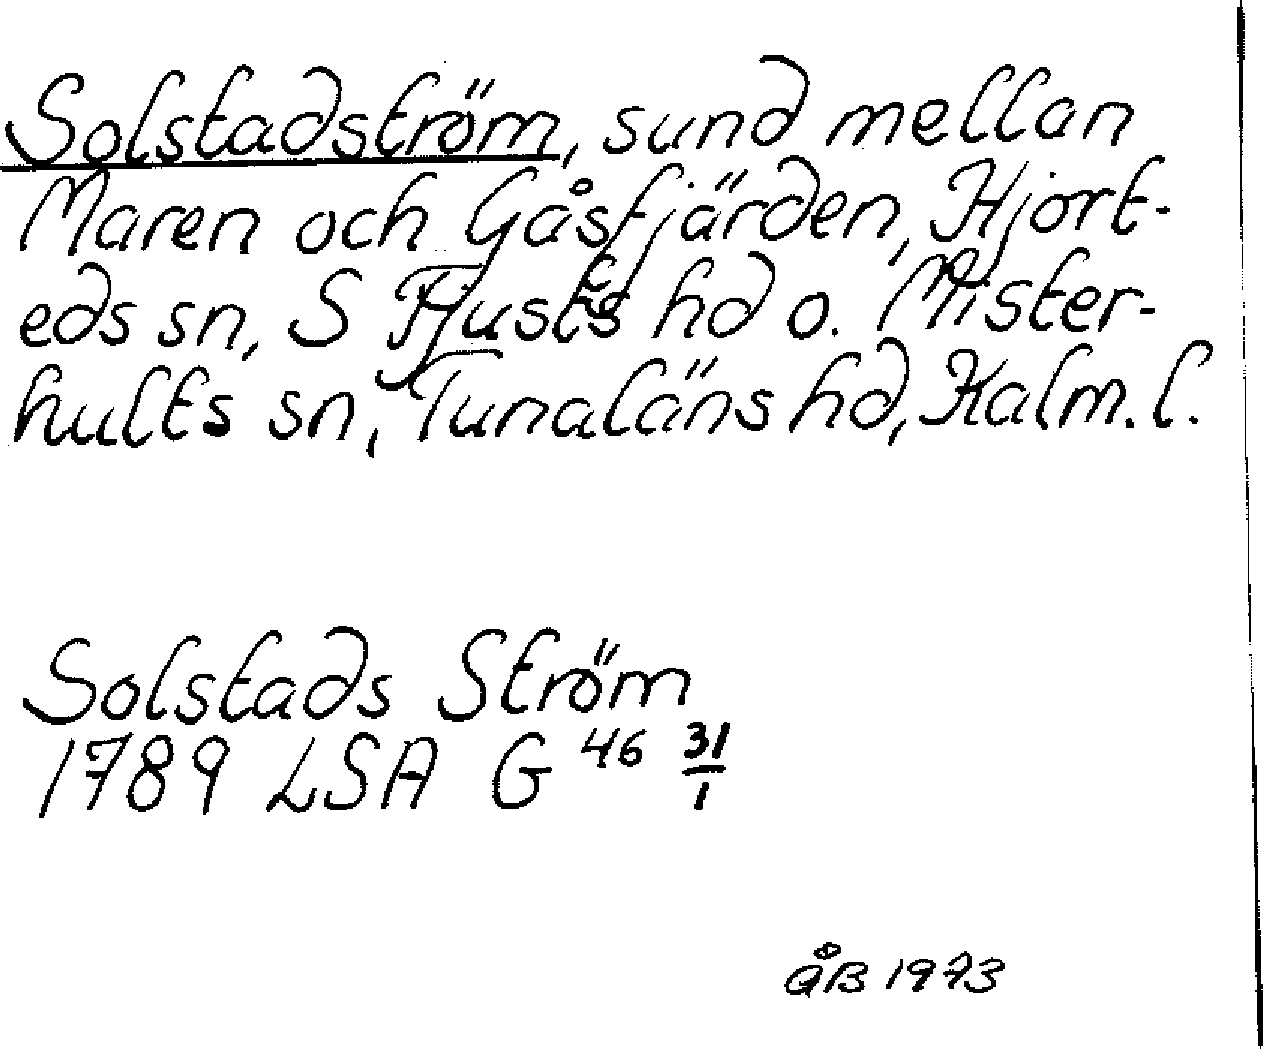 Solstadström, sund mellan
Maren och Gåsfjärden, Hjort-
eds sn, S Tjusts hd o. Mister-
hults sn, Tunaläns hd, Kalm. l.
Solstads Ström
1789 LSA G 46 31/1
ÅB 1973